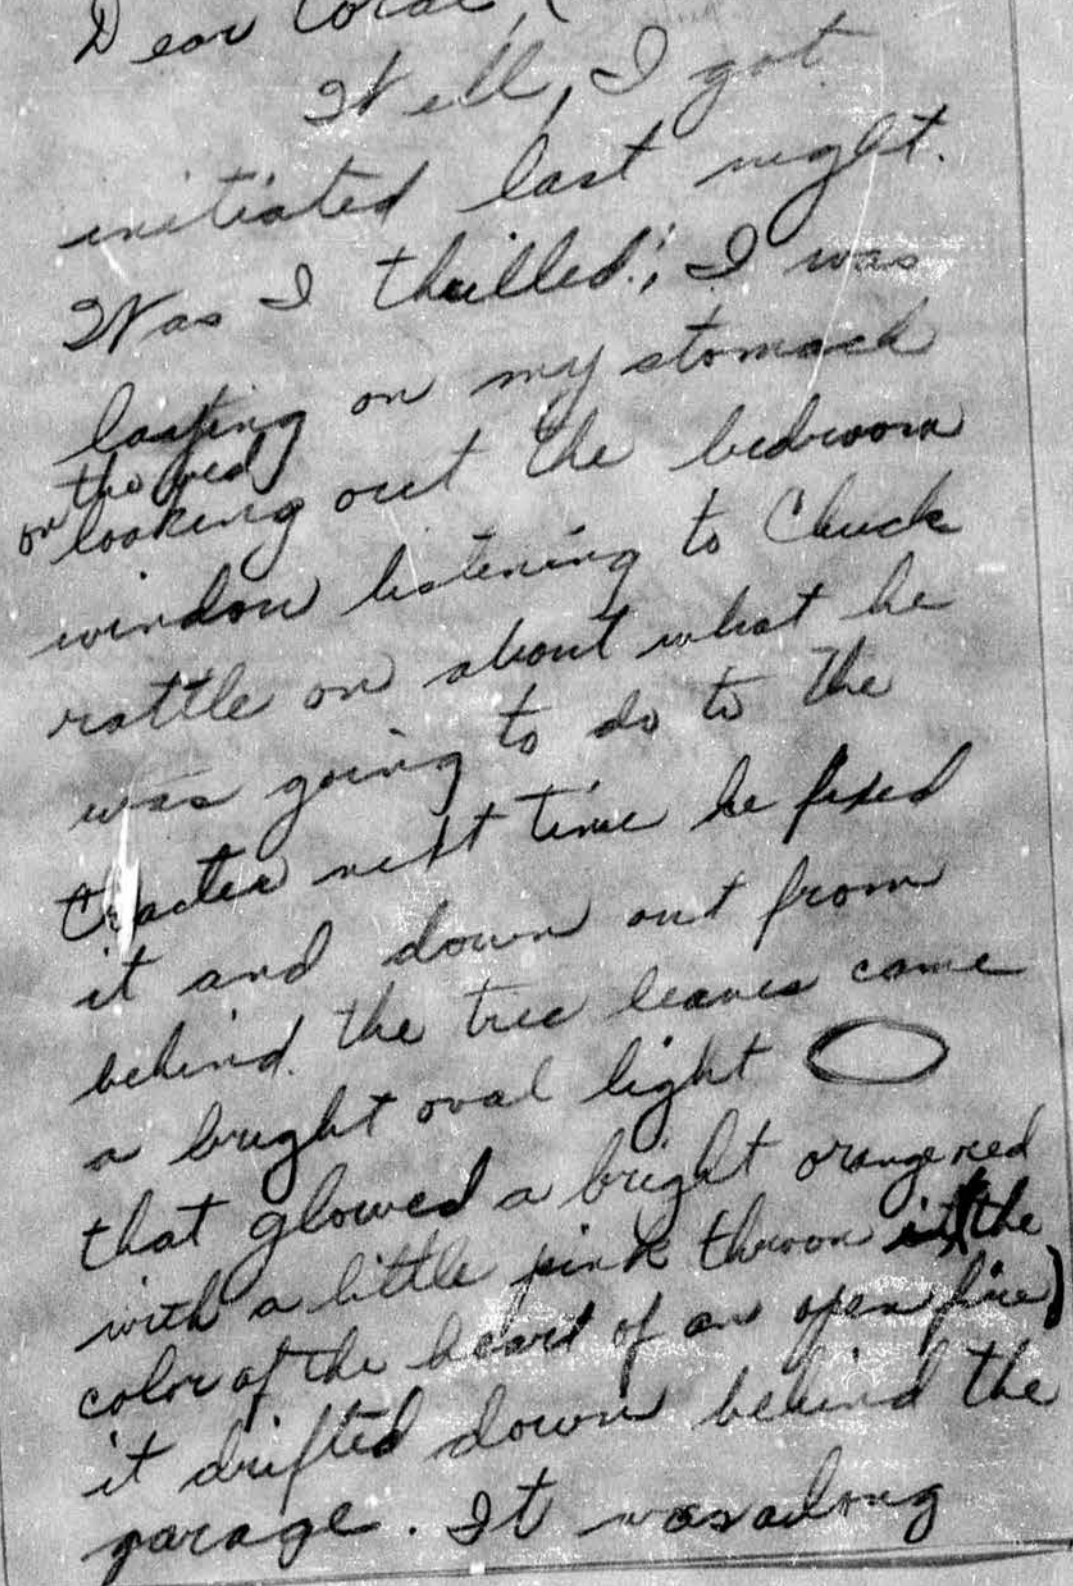 Dear Coral,
Well, I got
initiated last night.
Was I thrilled! I was
laying on my stomach
on the bed
looking out the bedroom
window listening to Chuck
rattle on about what he
was going to do to the
tracter next time he fixed
it and down out from
behind the tree leaves came
a bright oval light
that glowed a bright orange red
with a little pink thrown in (the
color of the heart of an open fire)
it drifted down behind the
garage. It was along